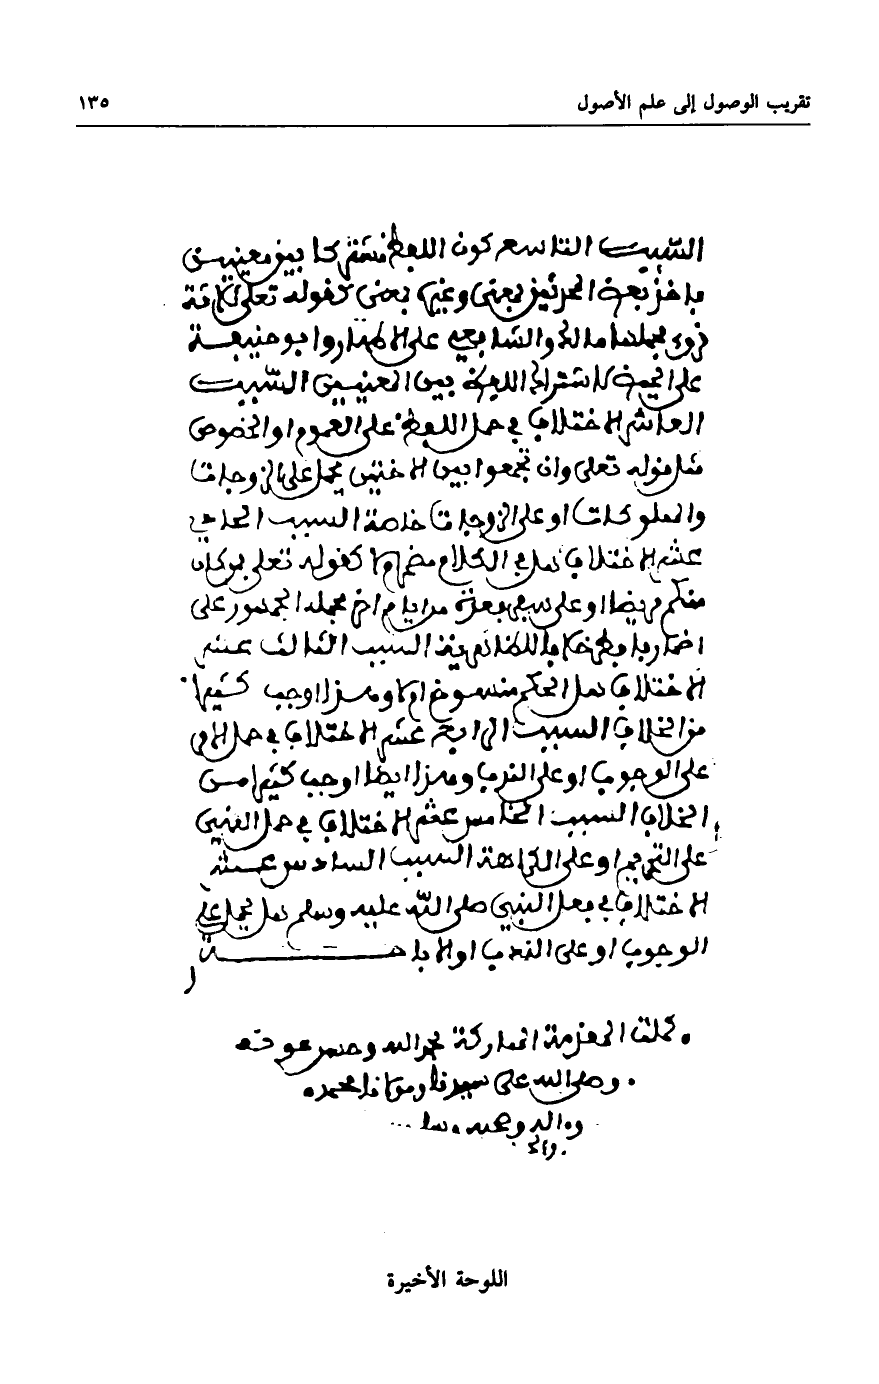 تقريب الوصول إلى علم الأصول ١٣٥
السبب التاسع كون اللفظ مشتركا بين معنيين
ياخذ بعض المجتهدين بمعنى وغيره بمعنى كقوله تعلى ثلاثة
قروء يحملها مالك والشافعي على الاطهار وابو حنيفة
على الحيض لاشتراك اللفظ بين المعنيين السبب
العاشر الاختلاف في حمل اللفظ على العموم او الخصوص
مثل قوله تعلى وان تجمعوا بين الاختين يحمل على الزوجات
والمملوكات او على الزوجات خاصة السبب الحادي
عشر الاختلاف هل في الكلام مضمر ام لا كقوله تعلى فمن كان
منكم مريضا او على سفر فعدة من ايام اخر يحمله الجمهور على
اضمار فافطر خلافا للظاهرية السبب الثالث عشر
الاختلاف هل الحكم منسوخ ام لا وهذا اوجب كثيرا
من الخلاف السبب الرابع عشر الاختلاف في حمل الامر
على الوجوب او على الندب وهذا ايضا اوجب كثيرا من
الخلاف السبب الخامس عشر الاختلاف في حمل النهي
على التحريم او على الكراهة السبب السادس عشر
الاختلاف في فعل النبي صلى الله عليه وسلم هل يحمل على
الوجوب او على الندب او الاباحة
كملت المقدمة المباركة بحمد الله وحسن عونه
وصلى الله على سيدنا ومولانا محمد
وءاله وصحبه
اللوحة الأخيرة